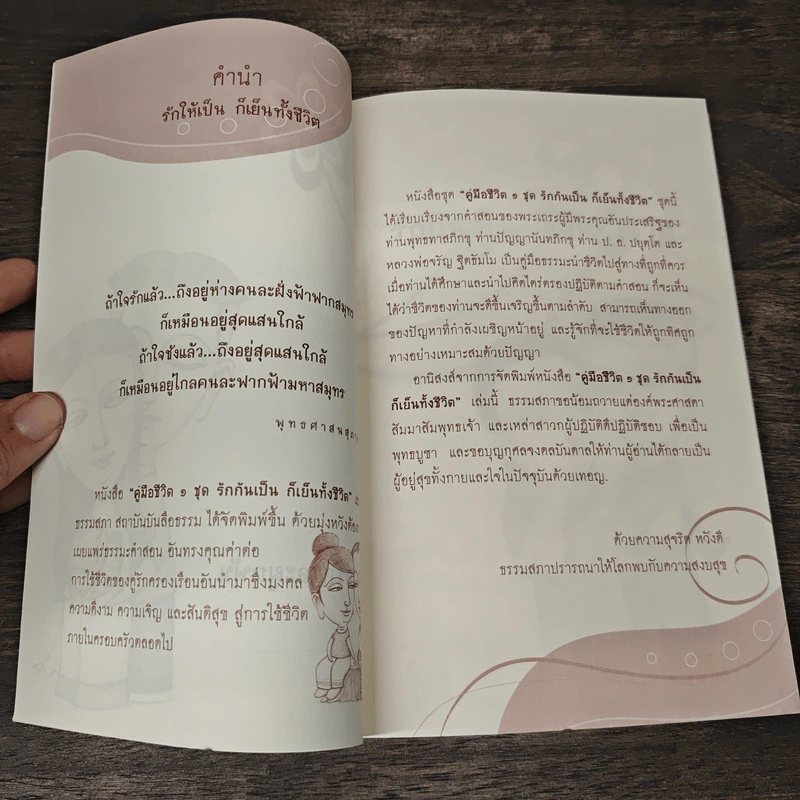 คำนำ
รักให้เป็น ก็เย็นทั้งชีวิต
ถ้าใจรักแล้ว...ถึงอยู่ห่างคนละฝั่งฟ้าฟากสมุทร
ก็เหมือนอยู่สุดแสนใกล้
ถ้าใจชังแล้ว...ถึงอยู่สุดแสนใกล้
ก็เหมือนอยู่ไกลคนละฟากฟ้ามหาสมุทร
พุทธศาสนสุภา
หนังสือ "คู่มือชีวิต ๑ ชุด รักกันเป็น ก็เย็นทั้งชีวิต"
ธรรมสภา สถาบันบันลือธรรม ได้จัดพิมพ์ขึ้น ด้วยมุ่งหวัง
เผยแพร่ธรรมะคำสอน อันทรงคุณค่าต่อ
การใช้ชีวิตของคู่รักครองเรือนอันนำมาซึ่งมงคล
ความดีงาม ความเจิญ และสันติสุข สู่การใช้ชีวิต
ภายในครอบครัวตลอดไป
หนังสือชุด "คู่มือชีวิต ๑ ชุด รักกันเป็น ก็เย็นทั้งชีวิต" ชุดนี้
ได้เรียบเรียงจากคำสอนของพระเถระผู้มีพระคุณอันประเสริฐของ
ท่านพุทธทาสภิกขุ ท่านปัญญานันทภิกขุ ท่าน ป. อ. ปยุตฺโต และ
หลวงพ่อจรัญ ฐิตธัมโม เป็นคู่มือธรรมะนำชีวิตไปสู่ทางที่ถูกที่ควร
เมื่อท่านได้ศึกษาและนำไปคิดใคร่ครองปฏิบัติตามคำสอน ก็จะเห็น
ได้ว่าชีวิตของท่านจะดีขึ้นเจริญขึ้นตามลำดับ สามารถเห็นทางออก
ของปัญหาที่กำลังเผชิญหน้าอยู่ และรู้จักที่จะใช้ชีวิตให้ถูกทิศถูก
ทางอย่างเหมาะสมด้วยปัญญา
อานิสงส์จากการจัดพิมพ์หนังสือ "คู่มือชีวิต ๑ ชุด รักกันเป็น
ก็เย็นทั้งชีวิต" เล่มนี้ ธรรมสภาขอน้อมถวายแด่องค์พระศาสดา
สัมมาสัมพุทธเจ้า และเหล่าสาวกผู้ปฏิบัติดีปฏิบัติชอบ เพื่อเป็น
พุทธบูชา และขอบุญกุศลจงดลบันดาลให้ท่านผู้อ่านได้กลายเป็น
ผู้อยู่สุขทั้งกายและใจในปัจจุบันด้วยเทอญ.
ด้วยความสุจริต หวังดี
ธรรมสภาปรารถนาให้โลกพบกับความสงบสุข